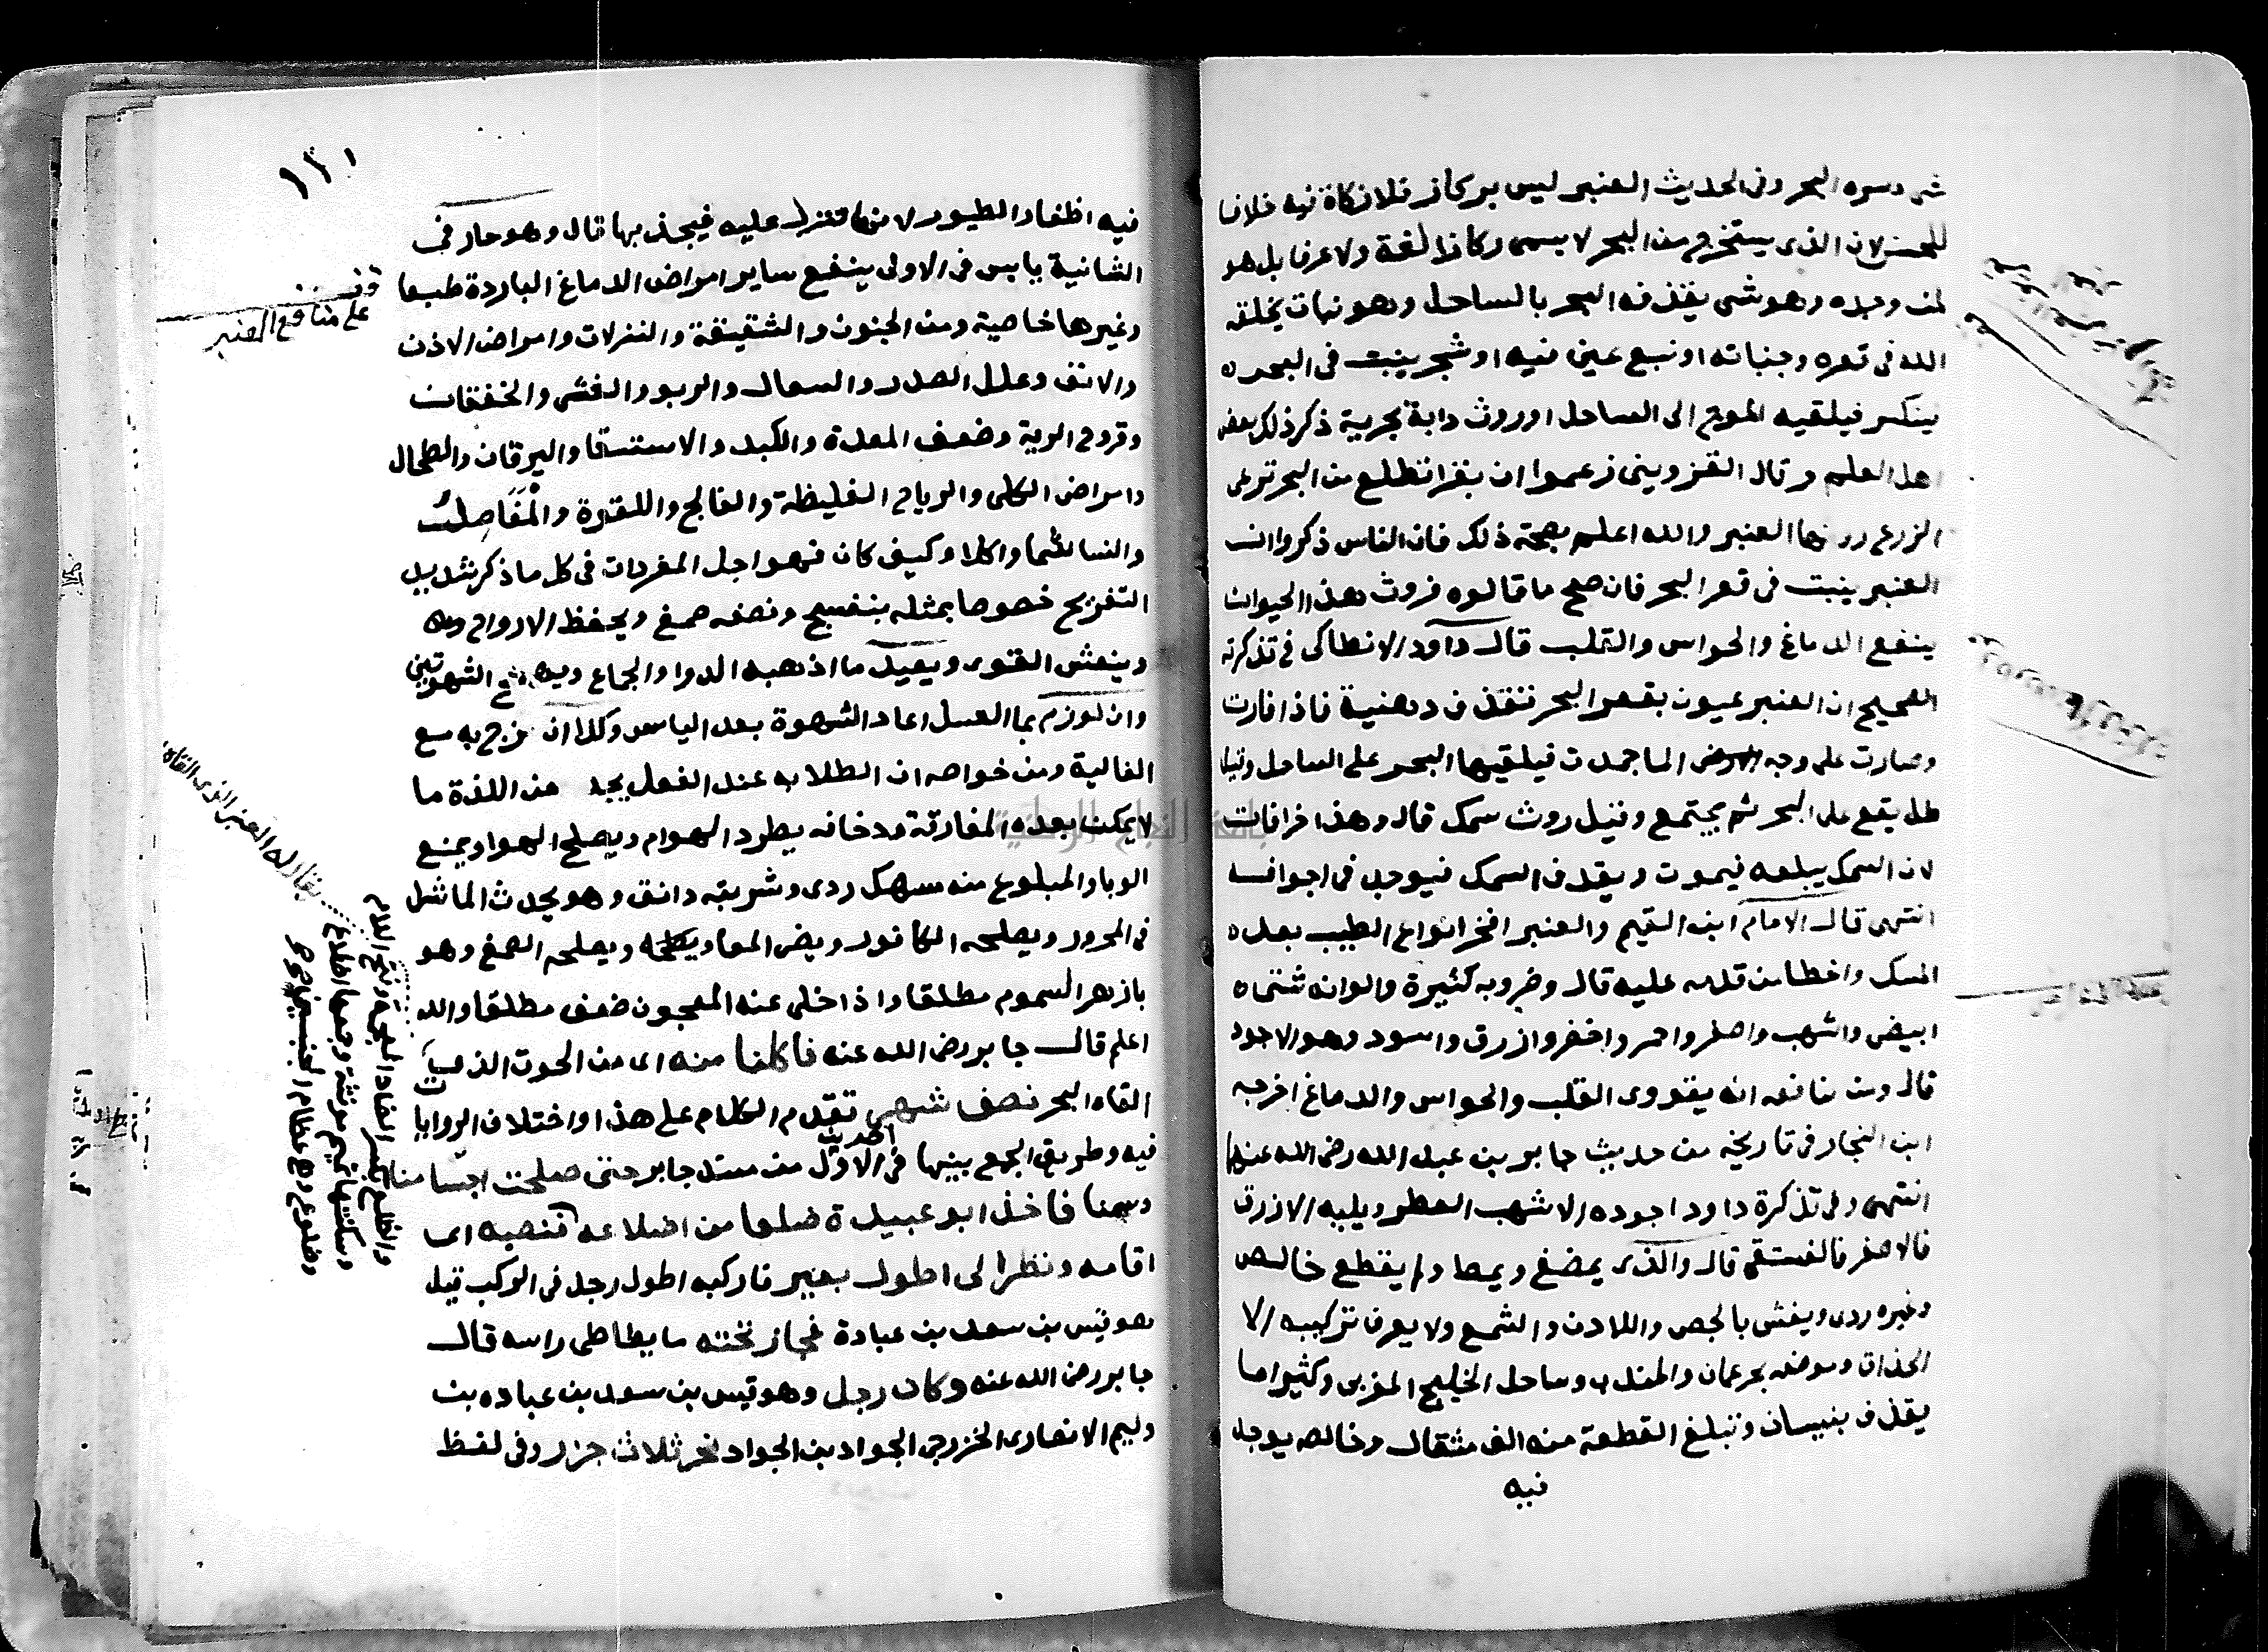 شي دسره البحر وفي الحديث العنبر ليس بركاز فلا زكاة فيه خلافا
للحسن لان الذي يستخرج من البحر لا يسمى ركازا لغة ولا عرفا بل هو
لمن وجده وهو شي يقذفه البحر بالساحل وهو نبات يخلقه
الله في قعره وجنباته او نبع عين فيه او شجر ينبت في البحر
ينكسر فيلقيه الموج الى الساحل او روث دابة بحرية ذكر ذلك بعض
اهل العلم وقال القزويني زعموا ان بقرا تطلع من البحر ترعى
الزرع روثها العنبر والله اعلم بصحة ذلك فان الناس ذكروا ان
العنبر ينبت في قعر البحر فان صح ما قالوه فروث هذا الحيوان
ينفع الدماغ والحواس والقلب قال داود الانطاكي في تذكرته
الصحيح ان العنبر عيون بقعر البحر تقذف دهنية فاذا فارت
وصارت على وجه الما جمدت فيلقيها البحر على الساحل وقيل
طل يقع على البحر ثم يجتمع وقيل روث سمك قال وهذا خرافات
لان السمك يبلعه فيموت ويقذف السمك فيوجد في اجوافه
انتهى قال الامام ابن القيم والعنبر افخر انواع الطيب بعد
المسك واخطا من قدمه عليه قال وضروبه كثيرة والوانه شتى
ابيض واشهب واصفر واحمر واخضر وازرق واسود وهو الاجود
قال ومن منافعه انه يقوي القلب والحواس والدماغ اخرجه
ابن النجار في تاريخه من حديث جابر بن عبد الله رضي الله عنهما
انتهى وفي تذكرة داود اجوده الاشهب العطر ويليه الازرق
فالاصفر فالفستقي قال والذي يمضغ ويمط ولم يقطع خالص
وغيره ردي ويغش بالجص واللادن والشمع ولا يعرف تركيبه الا
الحذاق وموضعه بحر عمان والمندب وساحل الخليج المغربي وكثيرا ما
يقذف بنيسان وتبلغ القطعة منه الف مثقال وخالصه يوجد
فيه
١٣١
فيه اظفار الطيور لانها تنزل عليه فيجذبها قال وهو حار في
الثانية يابس في الاولى ينفع ساير امراض الدماغ الباردة طبعا
وغيرها خاصية ومن الجنون والشقيقة والنزلات وامراض الاذن
والانف وعلل الصدر والسعال والربو والغشي والخفقان
وقروح الرية وضعف المعدة والكبد والاستسقا واليرقان والطحال
وامراض الكلى والرياح الغليظة والفالج واللقوة والمفاصل
والنسا شما واكلا وكيف كان فهو اجل المفردات في كل ما ذكر شديد
التفريح خصوصا بمثله بنفسج ونصفه صمغ ويحفظ الارواح
وينعش القوى ويعيد ما اذهبه الدوا والجماع ويهيج الشهوتين
وان لوزم بما العسل اعاد الشهوة بعد الياس وكذا ان مزج به مع
الغالية ومن خواصه ان الطلا به عند الفعل يجد من اللذة ما
لا يمكن بعده المفارقة ودخانه يطرد الهوام ويصلح الهوا ويمنع
الوبا والمبلوع منه سهك ردي وشربته دانق وهو يحدث الماشرا
في المحرور ويصلحه الكافور ويضر المعا ويصلحه الصمغ وهو
بازهر السموم مطلقا واذا خلي عنه المعجون ضعف مطلقا والله
اعلم قال جابر رضي الله عنه فاكلنا منه اى من الحوت الذي
القاه البحر نصف شهر تقدم الكلام على هذا واختلاف الروايات
فيه وطريق الجمع بينها في الحديث الاول من مسند جابر حتى صلحت اجسامنا
وسمنا فاخذ ابو عبيدة ضلعا من اضلاعه فنصبه اى
اقامه ونظر الى اطول بعير فاركبه اطول رجل في الركب قيل
هو قيس بن سعد بن عبادة فجاز تحته ما يطاطي راسه قال
جابر رضي الله عنه وكان رجل وهو قيس بن سعد بن عباده بن
دليم الانصاري الخزرجي الجواد بن الجواد نحر ثلاث جزر وفي لفظ
قف
على منافع العنبر
يقال له العنبر الذي القاه
والضلع بكسر الضاد المعجمة وفتح اللام